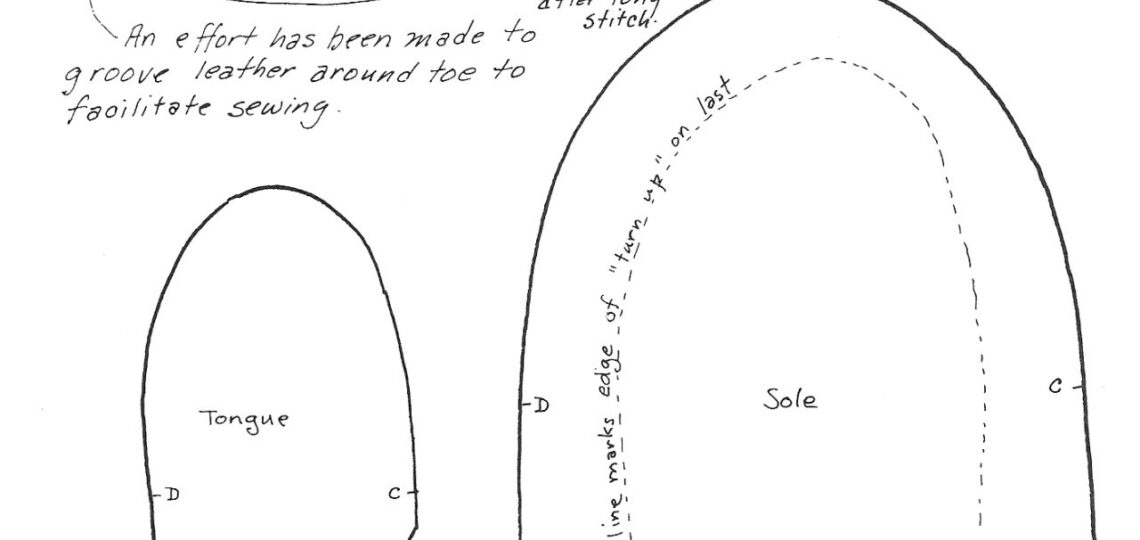 after long
stitch.
An effort has been made to
groove leather around toe to
facilitate sewing.
line marks edge of "turn up" on last
Tongue
D
C
D
Sole
C